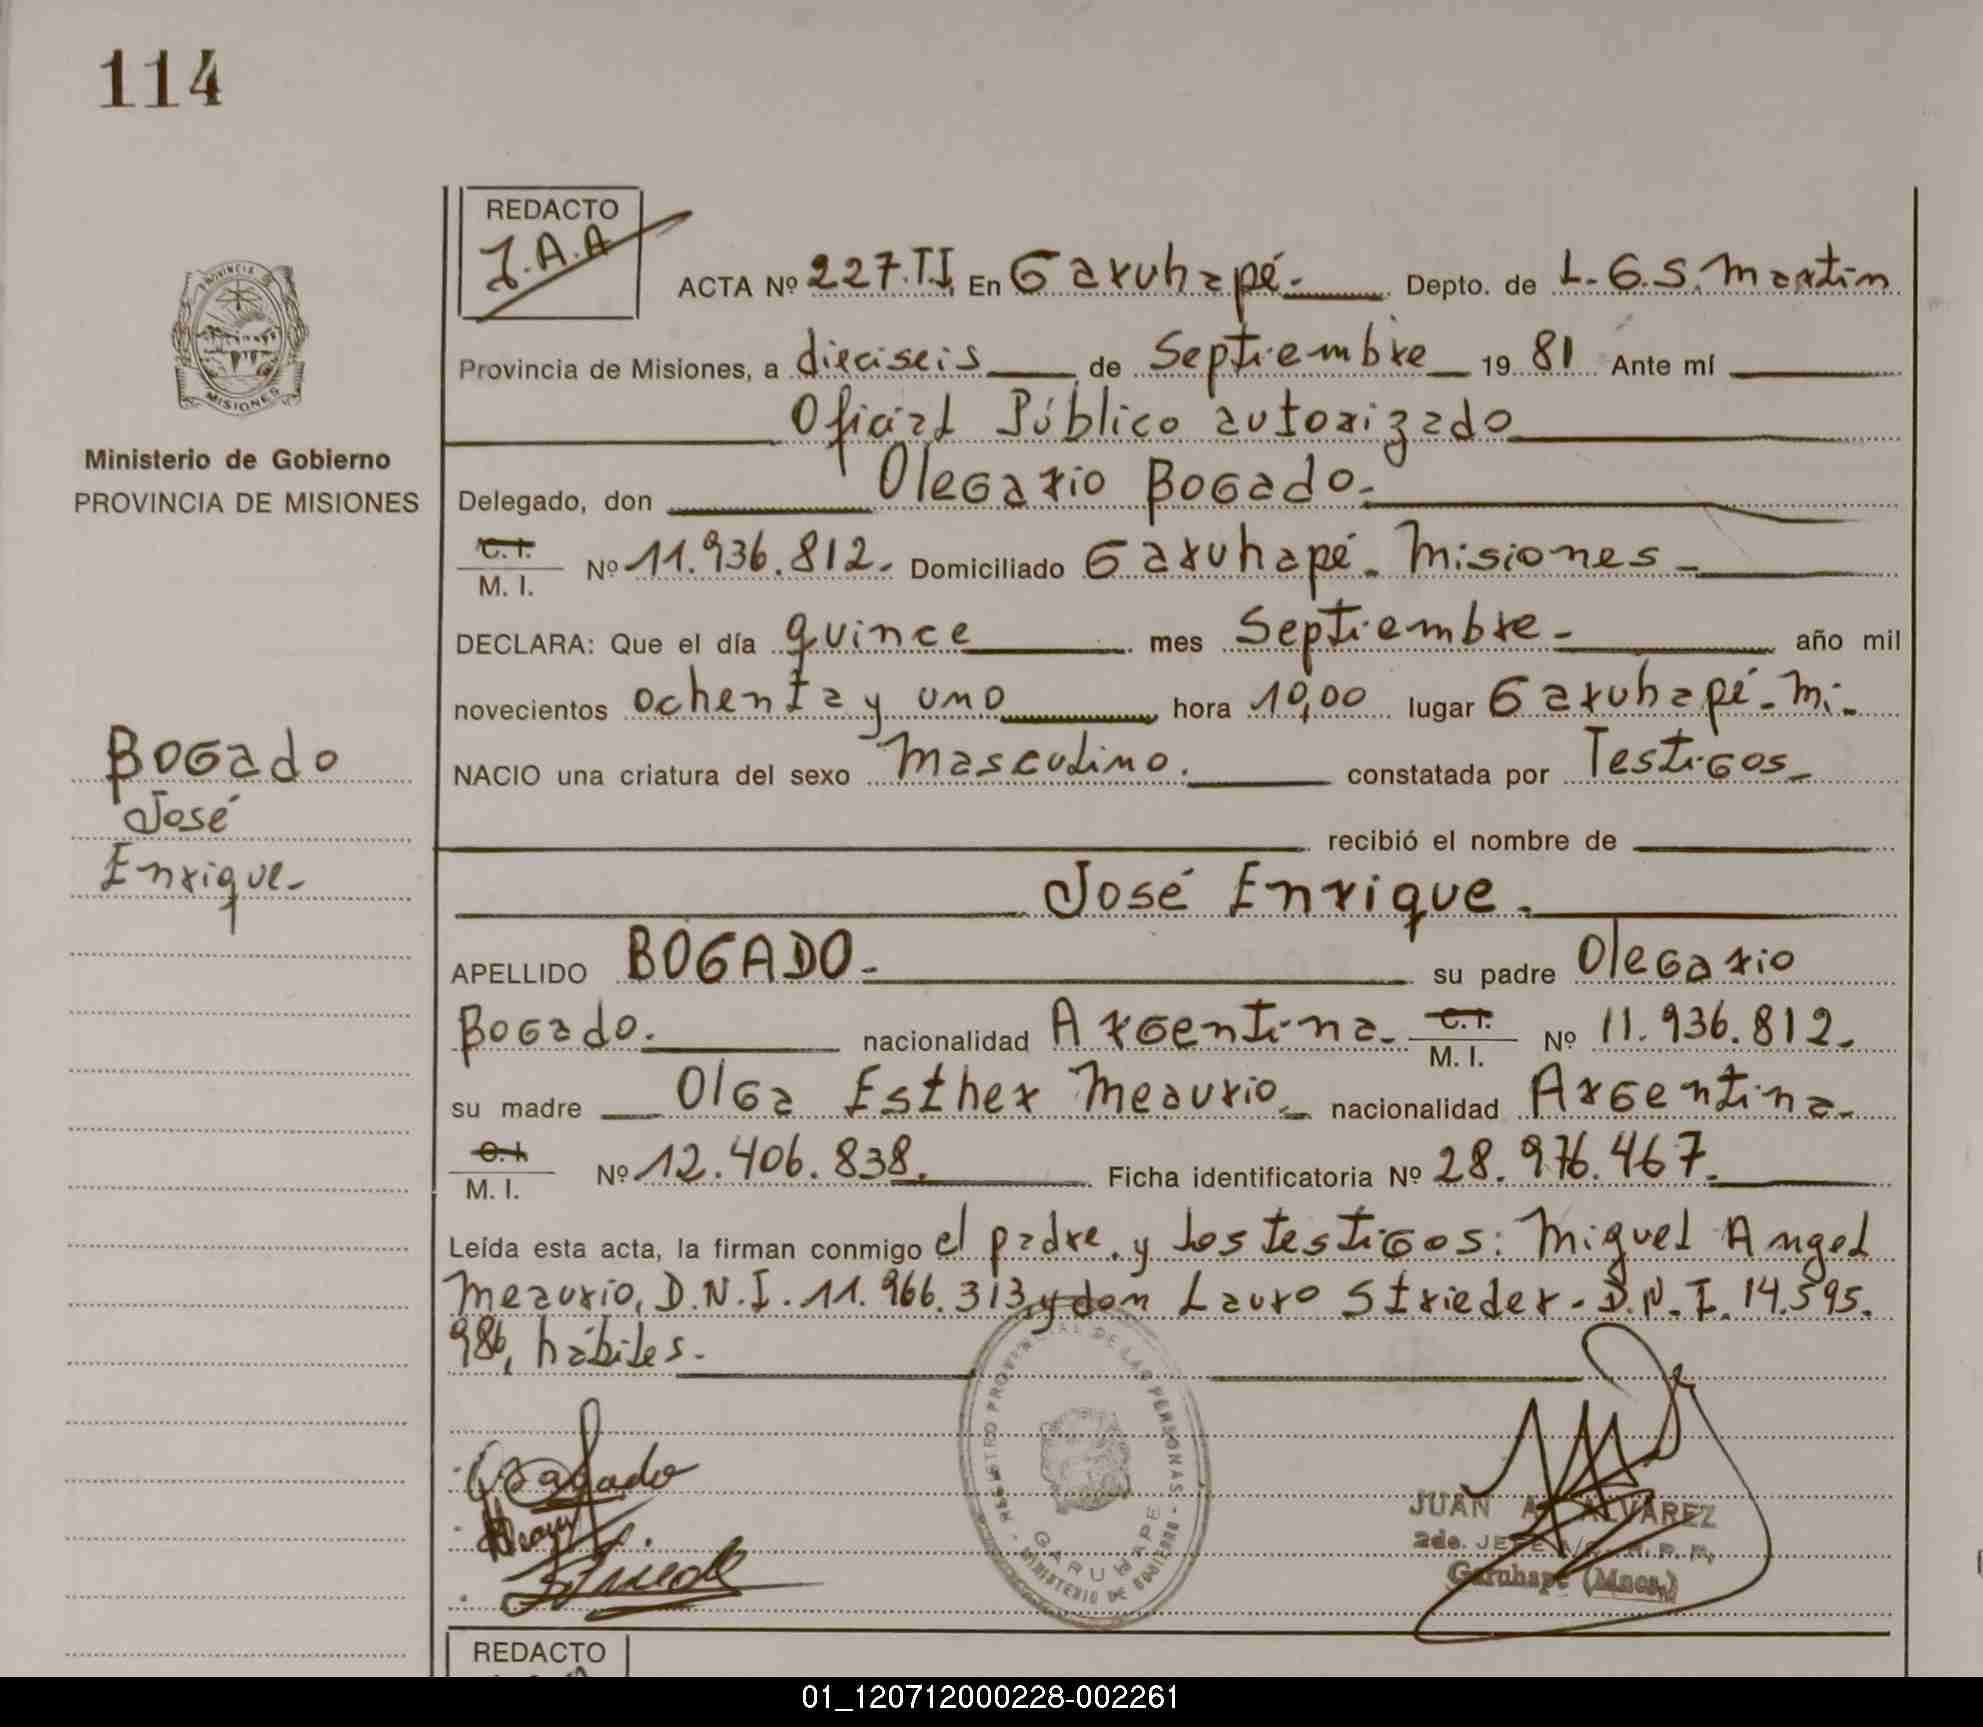 114
REDACTO
J.A.A
ACTA Nº 227.TI. En Garuhapé.- Depto. de L. G. S. Martin
PROVINCIA
MISIONES
Provincia de Misiones, a dieciseis de Septiembre 19 81 Ante mí
Oficial Público autorizado
Ministerio de Gobierno
PROVINCIA DE MISIONES
Delegado, don Olegario Bogado.-
C.I.
M. I. Nº 11.936.812.- Domiciliado Garuhapé. Misiones -
DECLARA: Que el día quince mes Septiembre.- año mil
novecientos ochenta y uno hora 10,00 lugar Garuhapé.- Mi.-
NACIO una criatura del sexo Masculino. constatada por Testigos.-
recibió el nombre de
José Enrique.
Bogado
José
Enrique.-
APELLIDO BOGADO.- su padre Olegario
Bogado. nacionalidad Argentina.- C.I.
M. I. Nº 11.936.812.-
su madre Olga Esther Meaurio.- nacionalidad Argentina.-
C.I
M. I. Nº 12.406.838. Ficha identificatoria Nº 28.976.467.
Leída esta acta, la firman conmigo el padre. y los testigos: Miguel Angel
Meaurio, D.N.I. 11.966.313, y don Lauro Strieder. D.N.I. 14.595.
986, hábiles.-
REGISTRO PROVINCIAL DE LAS PERSONAS - MINISTERIO DE GOBIERNO -
GARUHAPE
Bogado
JUAN A. ALVAREZ
2do. JEFE A/C. R. P. P.
Garuhapé (Mnes.)
REDACTO
01_120712000228-002261